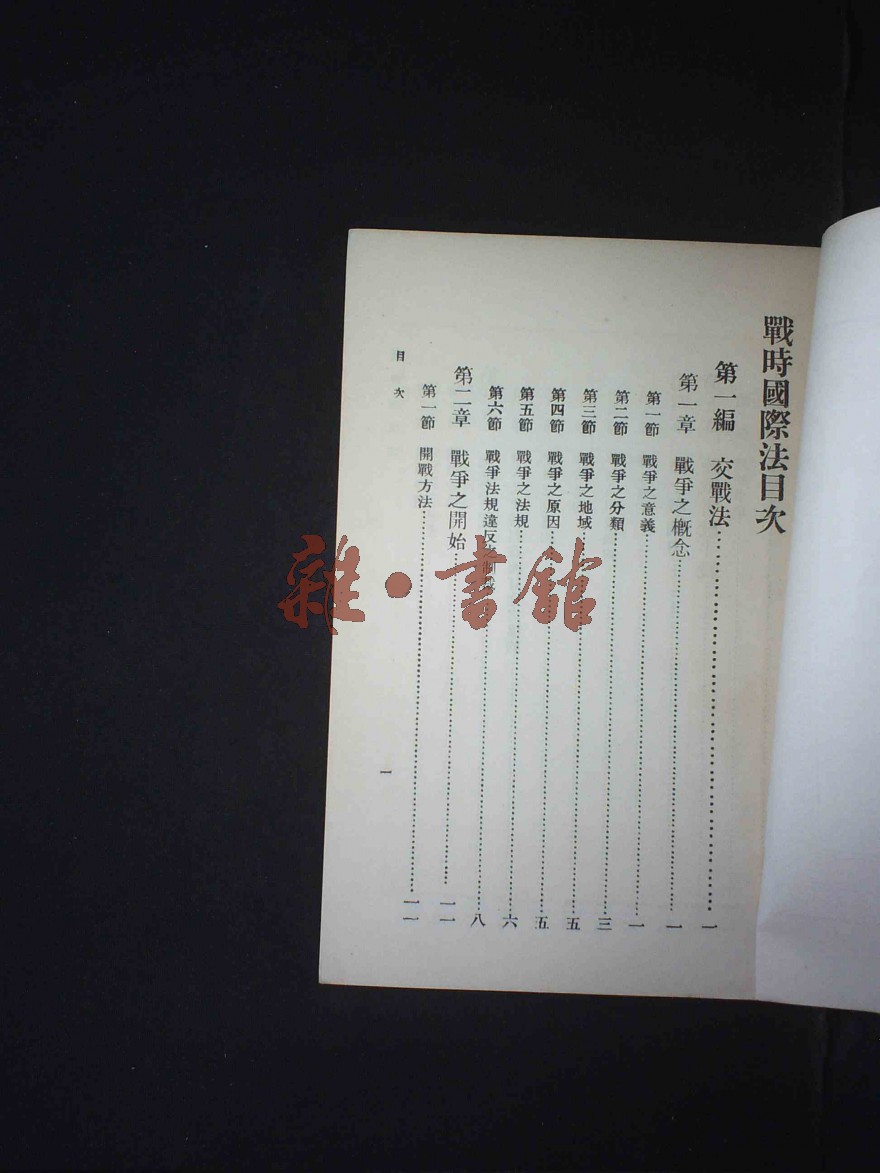 戰時國際法目次
第一編 交戰法……一
第一章 戰爭之概念……一
第一節 戰爭之意義……一
第二節 戰爭之分類……三
第三節 戰爭之地域……五
第四節 戰爭之原因……五
第五節 戰爭之法規……六
第六節 戰爭法規違反……八
第二章 戰爭之開始……一一
第一節 開戰方法……一一
目次
一
雜·書館